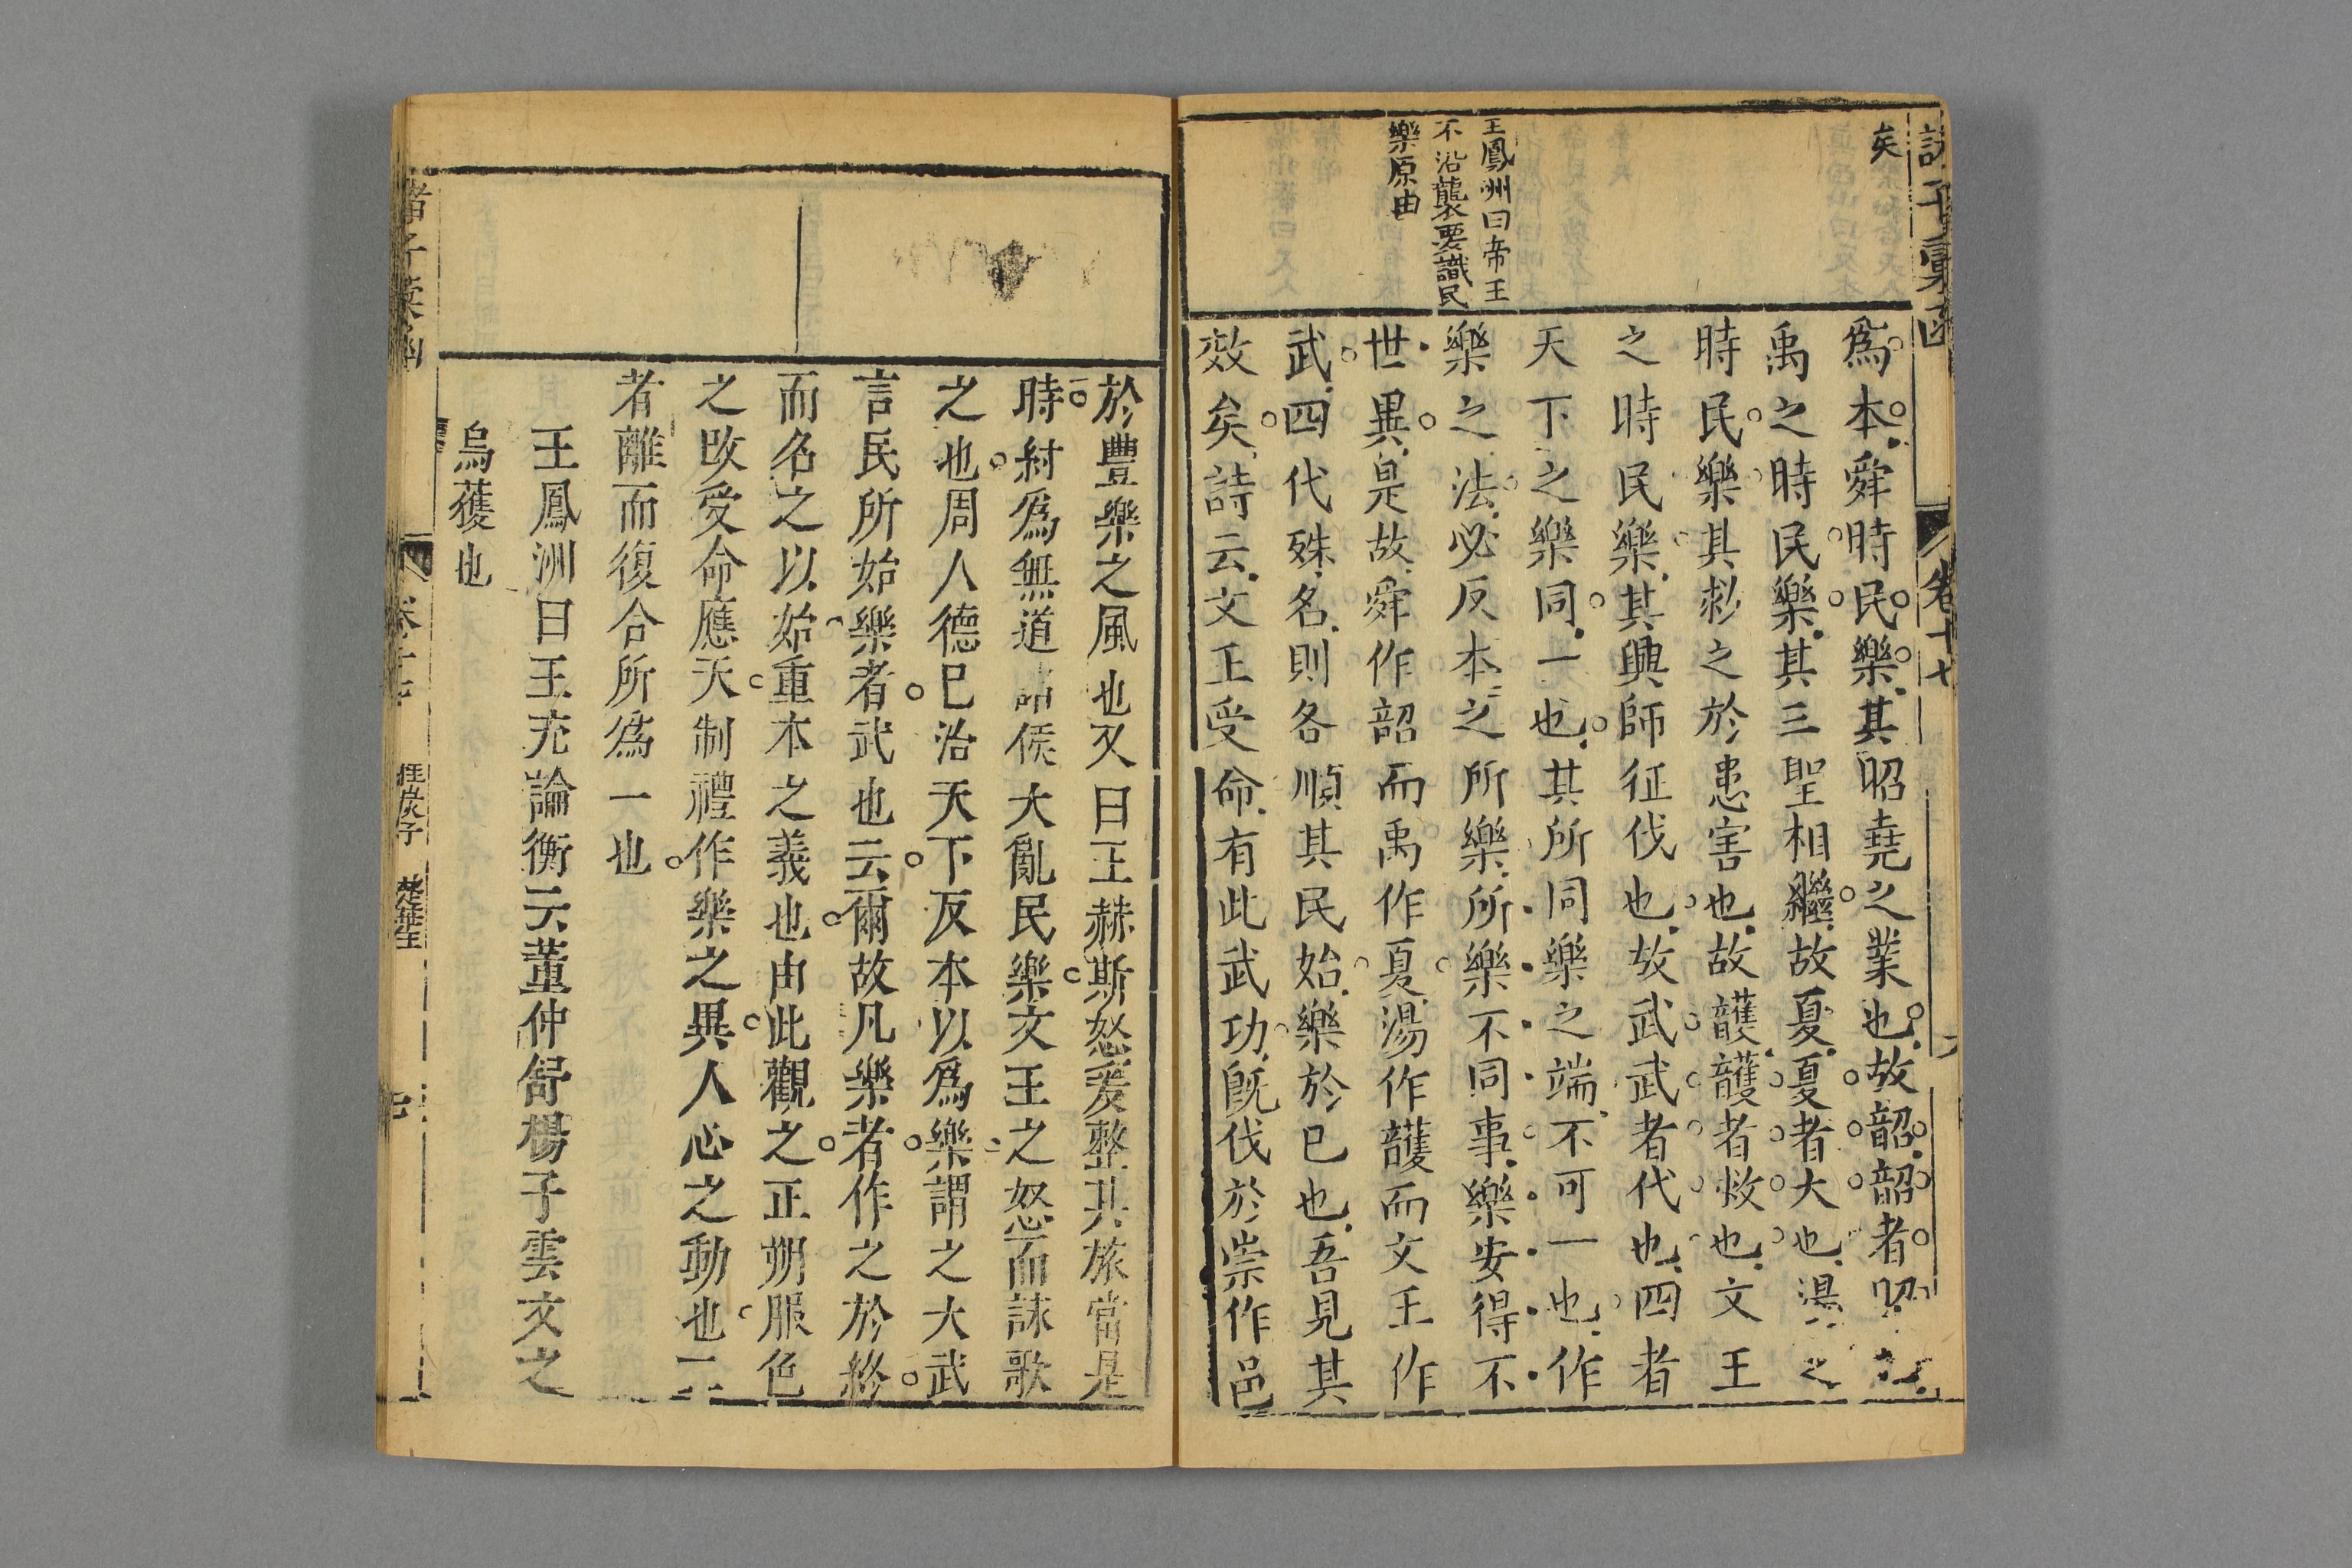 諸子彙函
卷十七
矣
王鳳洲曰帝王
不沿襲要識民
樂原由
為本舜時民樂其昭堯之業也故韶韶者昭也
禹之時民樂其三聖相繼故夏夏者大也湯之
時民樂其救之於患害也故頀頀者救也文王
之時民樂其興師征伐也故武武者代也四者
天下之樂同一也其所同樂之端不可一也作
樂之法必反本之所樂所樂不同事樂安得不
世異是故舜作韶而禹作夏湯作頀而文王作
武四代殊名則各順其民始樂於已也吾見其
效矣詩云文王受命有此武功旣伐於崇作邑
於豐樂之風也又曰王赫斯怒爰整其旅當是
時紂為無道諸侯大亂民樂文王之怒而詠歌
之也周人德已洽天下反本以為樂謂之大武
言民所始樂者武也云爾故凡樂者作之於終
而名之以始重本之義也由此觀之正朔服色
之改受命應天制禮作樂之異人心之動也二
者離而復合所為一也
王鳳洲曰王充論衡云董仲舒楊子雲文之
烏獲也
諸子彙函
卷十七